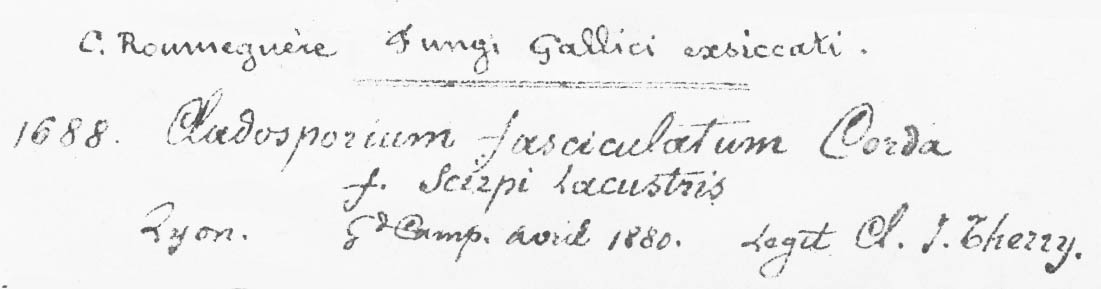 C. Roumeguère Fungi Gallici exsiccati.
1688. Cladosporium fasciculatum Corda
f. Scirpi Lacustris
Lyon. Gd Camp. avril 1880. Legit Cl. J. Therry.